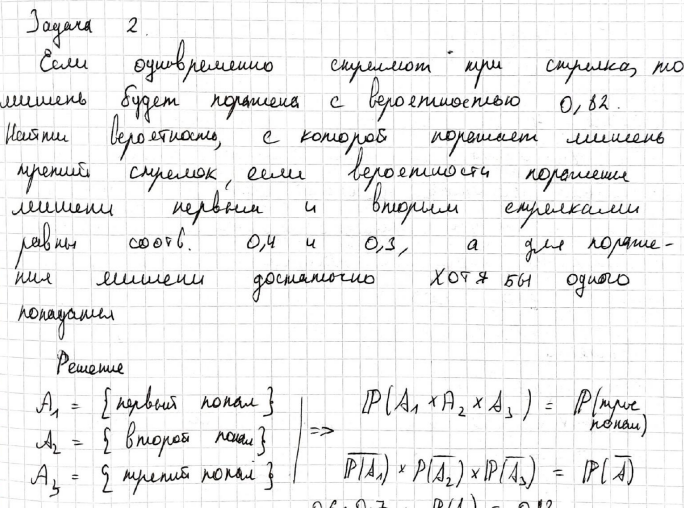 Задача 2.
Если одновременно стреляют три стрелка, то
мишень будет поражена с вероятностью 0,82.
Найти вероятность, с которой поражает мишень
третий стрелок, если вероятности поражения
мишени первым и вторым стрелками
равны соотв. 0,4 и 0,3, а для пораже-
ния мишени достаточно ХОТЯ БЫ одного
попадания
Решение
A₁ = { первый попал } ℙ(A₁ × A₂ × A₃) = ℙ(трое попал)
A₂ = { второй попал } =>
A₃ = { третий попал } ℙ(A̅₁) × P(A̅₂) × ℙ(A̅₃) = ℙ(A̅)